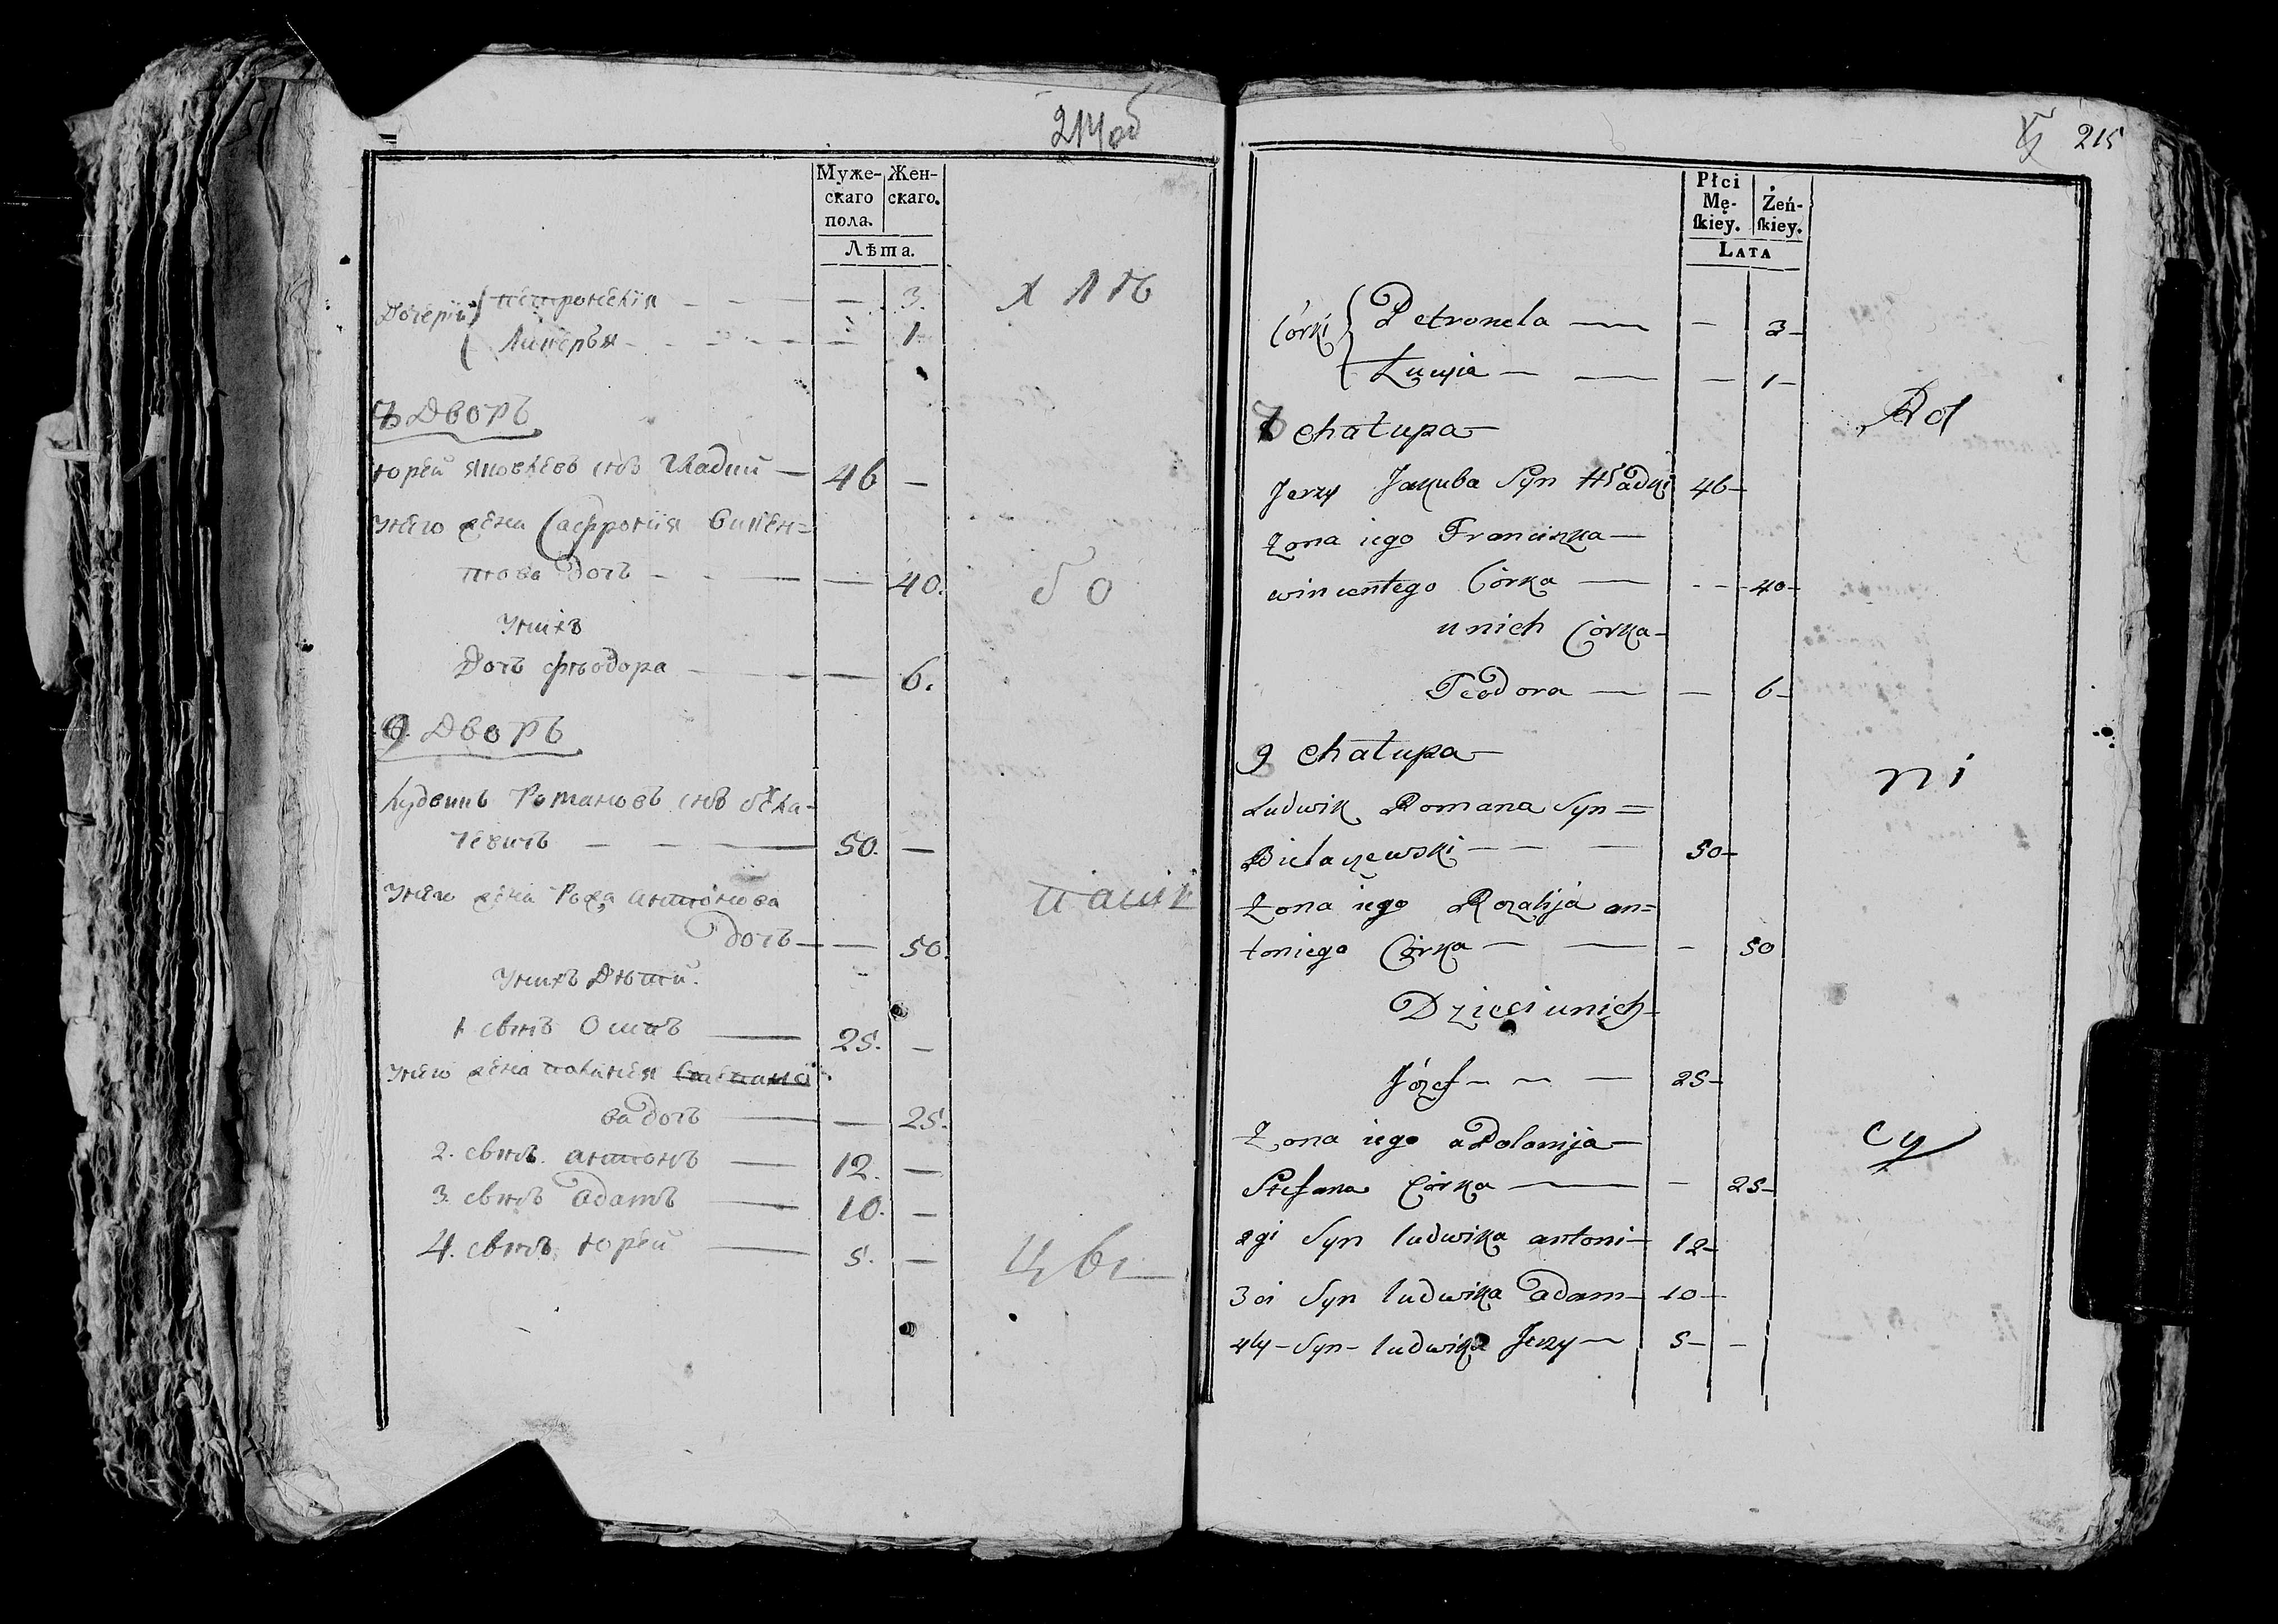 214 об
Муже-
скаго
пола.
Жен-
скаго.
Лѣта.
Дочерїи петронелїя — — — — 3.
— 1.
ХЛѢ
Дворъ
юрей яковлевъ снъ гладкий — 46 —
унего жена винцен-
това дочъ — — — — 40.
бо
унихъ
Дочъ ѳѣодора — — — 6.
9 Дворъ
Лудвикъ Романовъ снъ
— — — 50. —
унего жена антонова
дочъ — — 50.
пашц
унихъ Дѣти.
1 свнъ — 25. —
унего жена
ва дочъ — — 25.
2. свнъ антонъ — 12. —
3. свнъ адамъ — 10. —
4. свнъ юрей — 5. —
цы
215
Płci
Mę-
ſkiey.
Żeń-
ſkiey.
LATA
Córki Petronela — — 3 –
Łucyia — — — 1 –
chałupa —
Rol
Jerzy Jakuba Syn Hładki 46 –
Zona iego Franciszka —
wincentego Córka — - - - 40 –
unich Córka –
Teodora — — 6 –
9 chałupa —
ni
Ludwik Romana Syn =
Bielaszewski – – — 50 –
Zona iego Rozalija an=
toniego Córka – — – 50
Dzieci unich –
Józef – – — 25 –
Zona iego aPolonija —
cy
Stefana Córka — – 25 –
2gi Syn ludwika antoni – 12 –
3ci Syn ludwika adam – 10 –
4ty – Syn – ludwika Jerzy — 5 – –